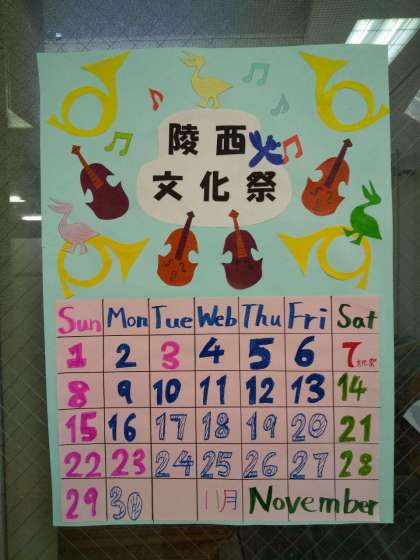 陵西
文化祭
Sun Mon Tue Web Thu Fri Sat
1 2 3 4 5 6 7 文化祭
8 9 10 11 12 13 14
15 16 17 18 19 20 21
22 23 24 25 26 27 28
29 30 11月 November